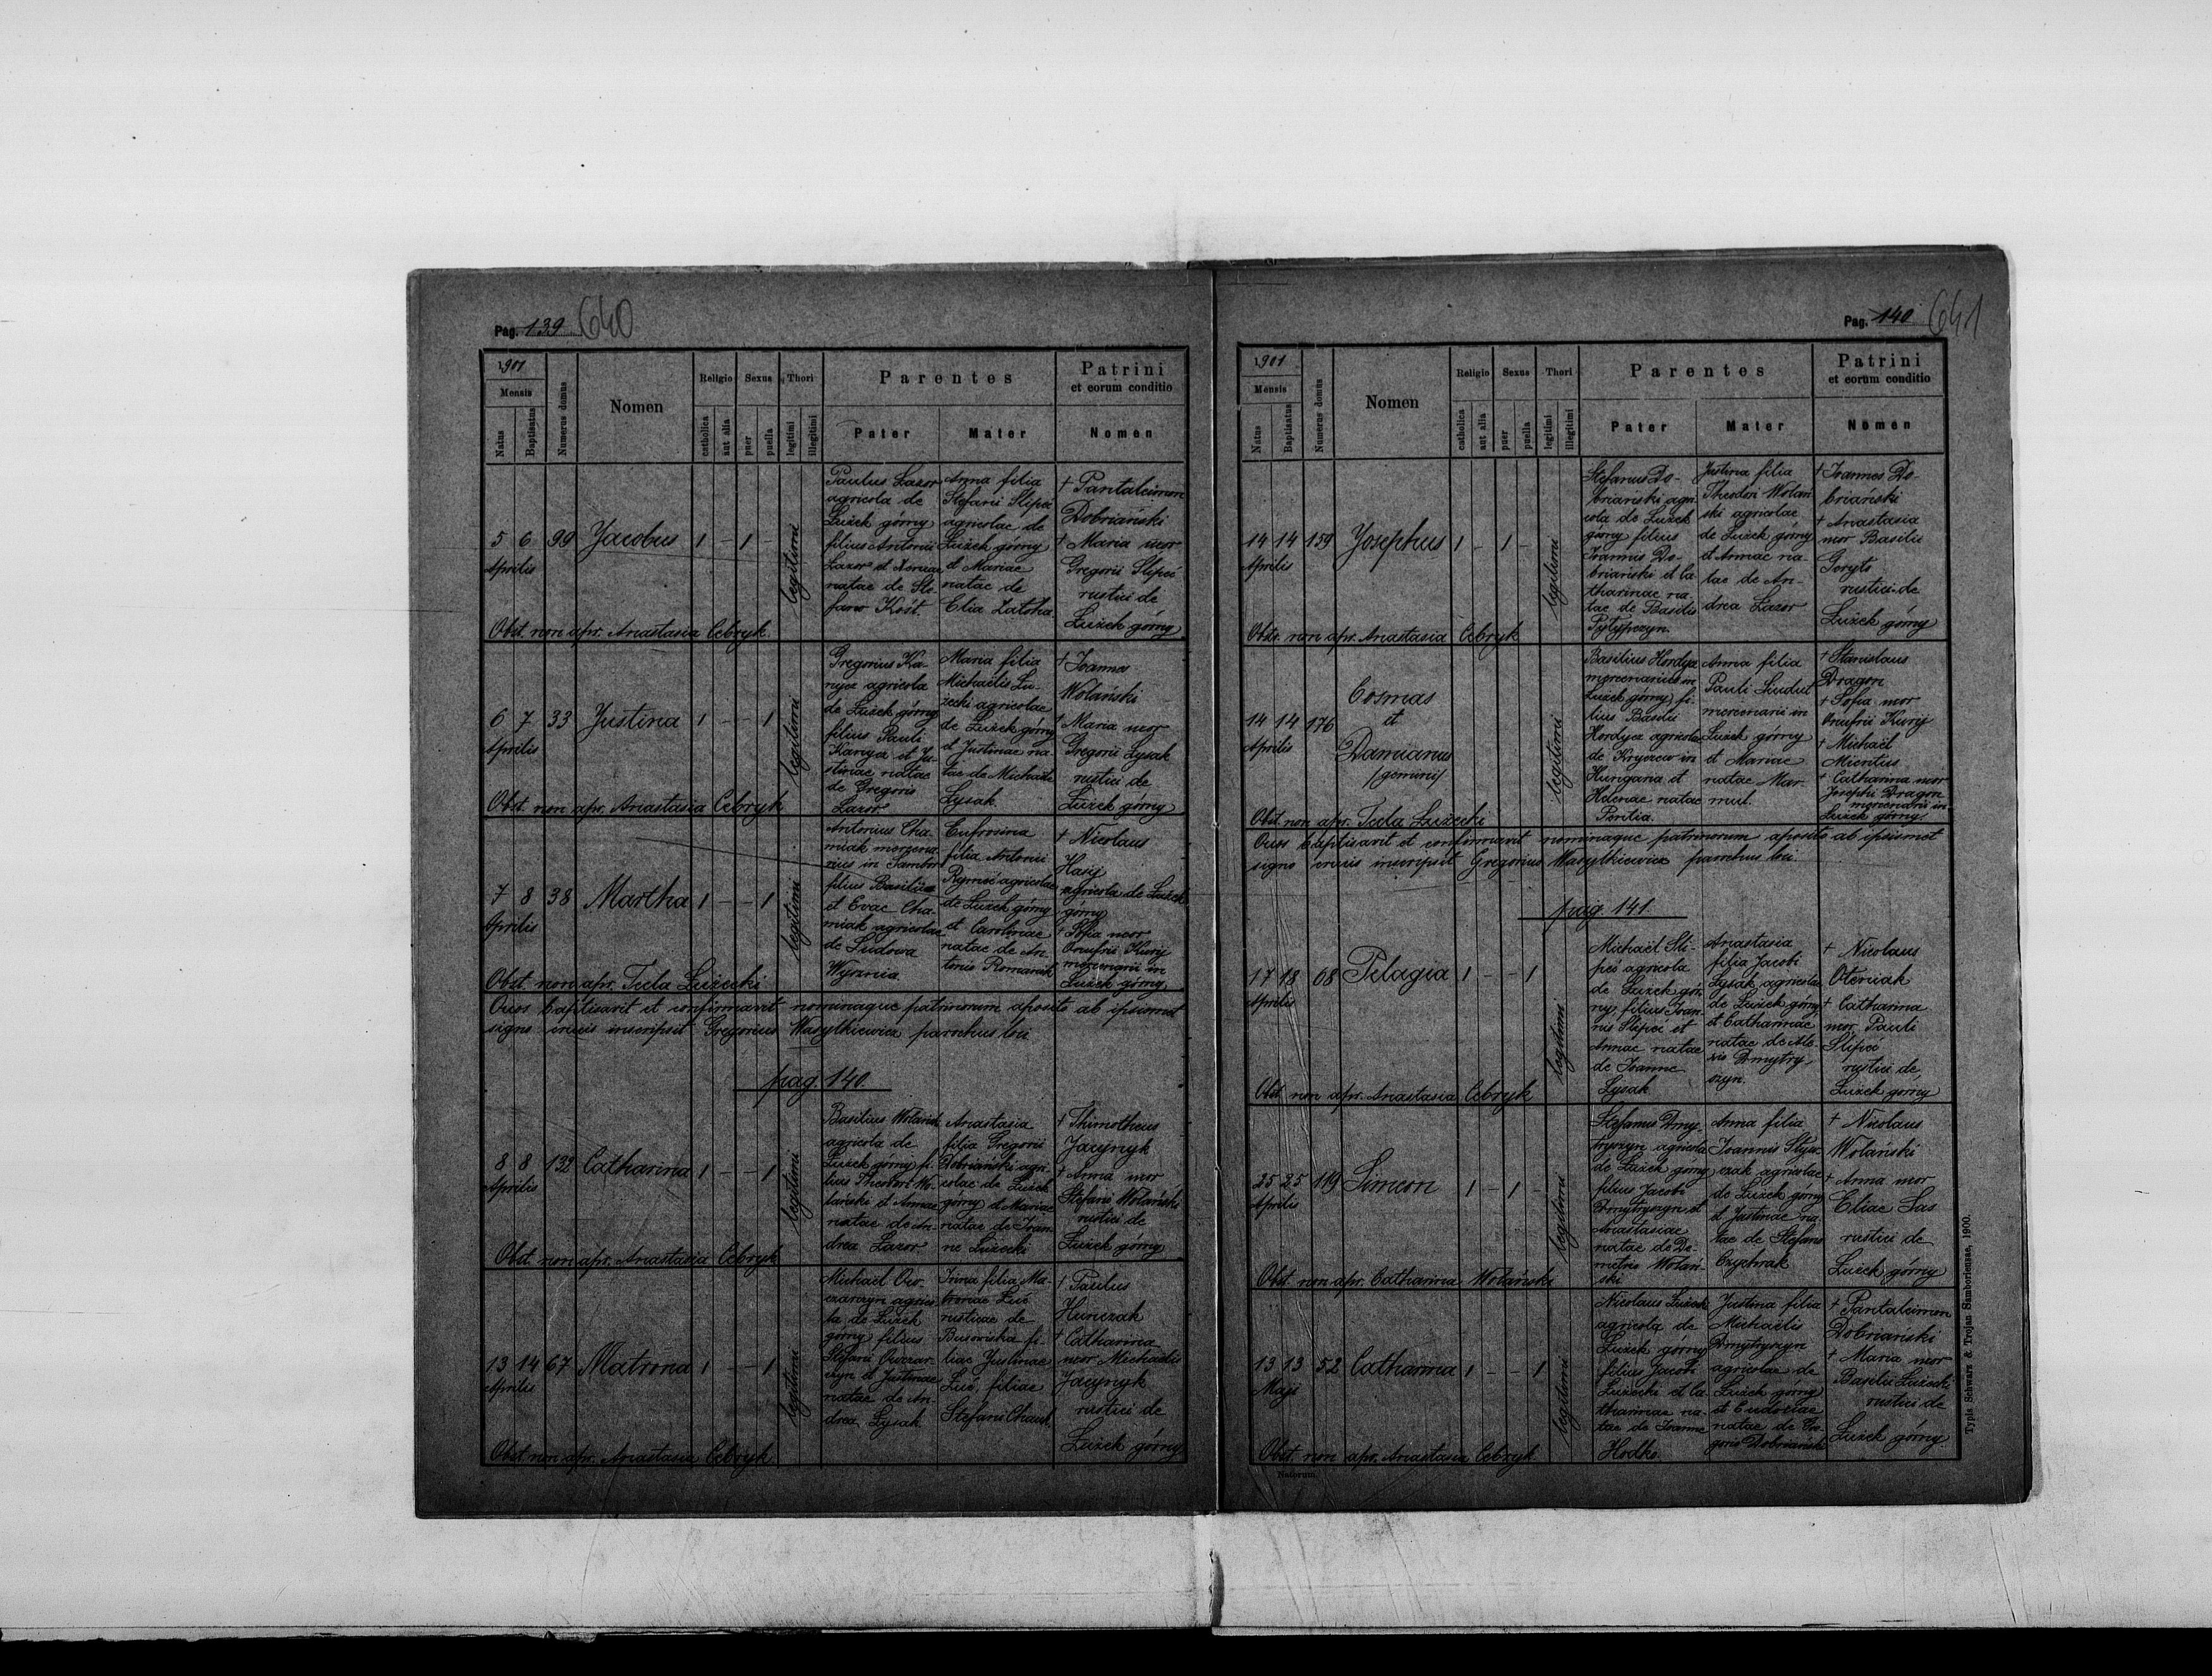 Pag. 139 640
1901
Mensis
Natus
Baptisatus
Numerus domus
Nomen
Religio
catholica
aut alia
Sexus
puer
puella
Thori
legitimi
illegitimi
Parentes
Pater
Mater
Patrini
et eorum conditio
Nomen
5 6 99 Jacobus 1 - 1 -
Aprilis
legitimi
Paulus Lazor
agricola de
Łużek górny
filius Antonii
Lazor et Xeniae
natae de Ste-
fano Kóst.
Anna filia
Stefani Slipeć
agricolae de
Łużek górny
et Mariae
natae de
Elia Zatoka
† Pantaleimon
Dobriański
† Maria uxor
Gregorii Slipeć
rustici de
Łużek górny
Obst. non apr. Anastasia Cebryk.
6 7 33 Justina 1 - - 1
Aprilis
legitimi
Gregorius Ka-
nycz agricola
de Łużek górny
filius Pauli
Kanycz et Ju-
stinae natae
de Gregorio
Lazor
Maria filia
Michaëlis Łu-
żecki agricolae
de Łużek górny
et Justinae na-
tae de Michaële
Łysak.
† Joannes
Wolański
† Maria uxor
Gregorii Łysak
rustici de
Łużek górny
Obst. non apr. Anastasia Cebryk
7 8 38 Martha 1 - - 1
Aprilis
legitimi
Antonius Cha-
miak mercena-
rius in Sambor
filius Basilii
et Evae Cha-
miak agricolae
de Sudowa
Wysznia
Eufrosina
filia Antonii
agricolae
de Łużek górny
et Carolinae
natae de An-
tonio Romaniak
† Nicolaus
Hasij
agricola de Łużek
górny
† Sofia uxor
Onufrii Kurij
mercenarii in
Łużek górny
Obst. non apr. Tecla Łużecki
Quos baptisavit et confirmavit nominaque patrinorum aposito ab ipsismet
signo crucis inscripsit Gregorius Wasylkiewicz parochus loci
pag. 140.
8 8 132 Catharina 1 - - 1
Aprilis
legitimi
Basilius Wolański
agricola de
Łużek górny fi-
lius Theodori Wo-
lański et Annae
natae de An-
drea Lazor
Anastasia
filia Gregorii
Dobriański agri-
colae de Łużek
górny et Mariae
natae de Joan-
ne Łużecki
† Thimotheus
Jacejnyk
† Anna uxor
Stefani Wolański
rustici de
Łużek górny
Obst. non apr. Anastasia Cebryk
13 14 67 Matrona 1 - - 1
Aprilis
legitimi
Michaël Ow-
czarczyn agrico-
la de Łużek
górny filius
Stefani Owczar-
czyn et Justinae
natae de An-
drea Łysak
Irina filia Ma-
tronae Luć
rusticae de
Busowiska fi-
liae Justinae
Luć, filiae
Stefani
† Paulus
Hunczak
† Catharina
uxor Michaëlis
Jacejnyk
rustici de
Łużek górny
Obst. non apr. Anastasia Cebryk
Pag. 140 641
1901
Mensis
Natus
Baptisatus
Numerus domus
Nomen
Religio
catholica
aut alia
Sexus
puer
puella
Thori
legitimi
illegitimi
Parentes
Pater
Mater
Patrini
et eorum conditio
Nomen
14 14 159 Josephus 1 - 1 -
Aprilis
legitimi
Stefanus Do-
briański agri-
cola de Łużek
górny filius
Joannis Do-
briański et Ca-
tharinae na-
tae de Basilio
Pytypczyn.
Justina filia
Theodori Wolań
ski agricolae
de Łużek górny
et Annae na-
tae de An-
drea Lazor
† Joannes Do-
briański
† Anastasia
uxor Basilii
Goryto
rustici de
Łużek górny
Obst. non apr. Anastasia Cebryk
14 14 176
Aprilis
Cosmas
et
Damianus
/gemini/
legitimi
Basilius Hordycz
mercenarius in
Łużek górny, fi-
lius Basilii
Hordycz agricolae
de in
Hungaria et
Helenae natae
Perilia.
Anna filia
Pauli Siudut
mercenarii in
Łużek górny
et Mariae
natae Mar-
mul.
† Stanislaus
Dragon
† Sofia uxor
Onufrii Kurij
† Michaël
Mientus
† Catharina uxor
Josephi Dragon
mercenarii in
Łużek górny.
Obst. non apr. Tecla Łużecki
Quos baptisavit et confirmavit nominaque patrinorum aposito ab ipsismet
signo crucis inscripsit Gregorius Wasylkiewicz parochus loci
pag. 141.
17 18 68 Pelagia 1 - - 1
Aprilis
legitimi
Michaël Sli-
peć agricola
de Łużek gór-
ny, filius Joan-
nis Slipeć et
Annae natae
de Joanne
Łysak
Anastasia
filia Jacobi
Łysak agricolae
de Łużek górny
et Catharinae
natae de Ale-
xio Dmytry-
szyn.
† Nicolaus
Oleniak
† Catharina
uxor Pauli
Slipeć
rustici de
Łużek górny
Obst. non apr. Anastasia Cebryk
25 25 119 Simeon 1 - 1 -
Aprilis
legitimi
Stefanus Dmy-
tryszyn agricola
de Łużek górny
filius Jacobi
Dmytryszyn et
Anastasiae
natae de De-
metrio Wolań-
ski
Anna filia
Joannis
czak agricolae
de Łużek górny
et Justinae na-
tae de Stefano
† Nicolaus
Wolański
† Anna uxor
Eliae Sas
rustici de
Łużek górny
Obst. non apr. Catharina Wolański
13 13 52 Catharina 1 - - 1
Maji
legitimi
Nicolaus Łużecki
agricola de
Łużek górny
filius Jacobi
Łużecki et Ca-
tharinae na-
tae de Joanne
Hodko.
Justina filia
Michaëlis
Dmytryszyn
agricolae de
Łużek górny
et Eudociae
natae de Gre-
gorio Dobriański
† Pantaleimon
Dobriański
† Maria uxor
Basilii Łużecki
rustici de
Łużek górny
Obst. non apr. Anastasia Cebryk
Natorum
Typis Schwarz & Trojan Samboriensae, 1900.